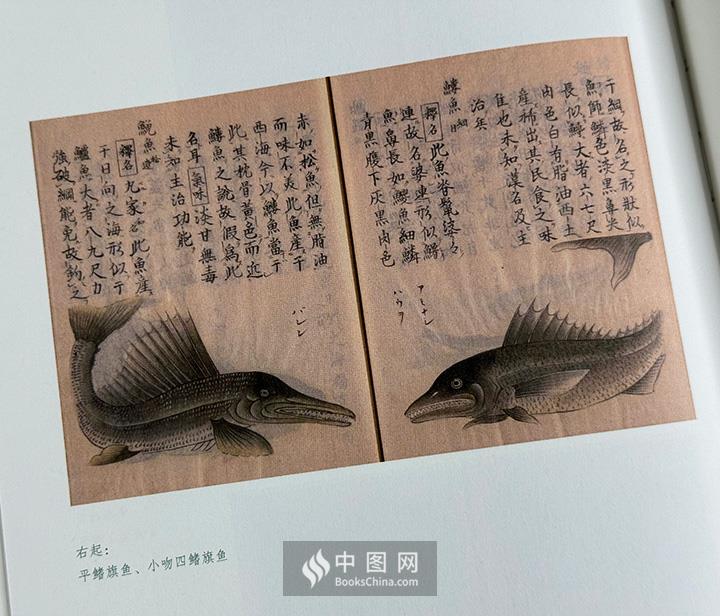 干細故名之形狀似
魚師鱗色淡黑鼻尖
長似鱘大者六七尺
肉色白有脂油西土
産稀出其民食之味
佳也未知漢名及主
治矣
魚
釋名 此魚脊鬣婆々
連故名婆連形似
魚鼻長如魚細鱗
青黑腹下灰黑肉色
ハウヲ
赤如松魚但無脂油
而味不美此魚産干
西海今以魚當干
此其枕骨黃色而近
魚之說故假爲此
名耳 氣味 淡甘無毒
未知主治功能
バレン
魚
釋名 九家名此魚産
干日向之海形似干
魚大者八九尺力
強破網能免故釣之
右起：
平鳍旗鱼、小吻四鳍旗鱼
中图网
BooksChina.com